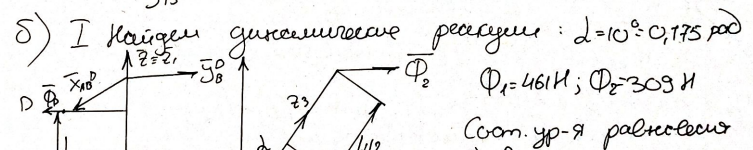 б) I Найдем динамические реакции : α=10°=0,175 рад
z=z₁
X̄ᴀʙᴰ
Ȳʙᴰ
Φ̄₂
D
z₃
Φ₁=461Н ; Φ₂=309Н
α
Сост. ур-я равновесия